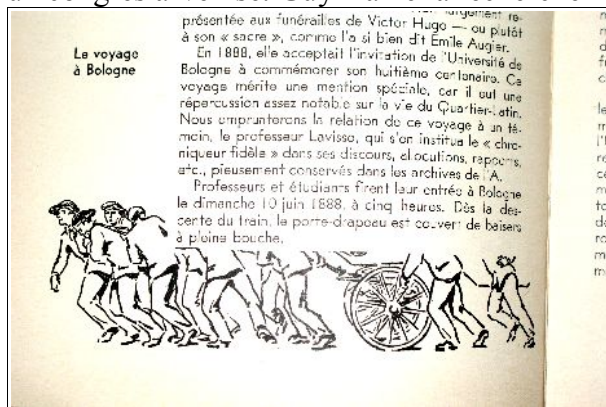 Le voyage
à Bologne
présentée aux funérailles de Victor Hugo — ou plutôt
à son « sacre », comme l'a si bien dit Émile Augier.
En 1888, elle acceptait l'invitation de l'Université de
Bologne à commémorer son huitième centenaire. Ce
voyage mérite une mention spéciale, car il eut une
répercussion assez notable sur la vie du Quartier-Latin.
Nous emprunterons la relation de ce voyage à un té-
moin, le professeur Lavisse, qui s'en institua le « chro-
niqueur fidèle » dans ses discours, allocutions, rapports,
etc., pieusement conservés dans les archives de l'A.
Professeurs et étudiants firent leur entrée à Bologne
le dimanche 10 juin 1888, à cinq heures. Dès la des-
cente du train, le porte-drapeau est couvert de baisers
à pleine bouche.